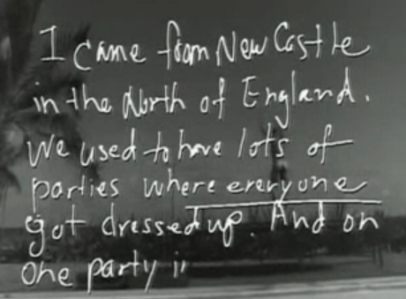 I came from New Castle
in the North of England.
We used to have lots of
parties where everyone
got dressed up. And on
one party i